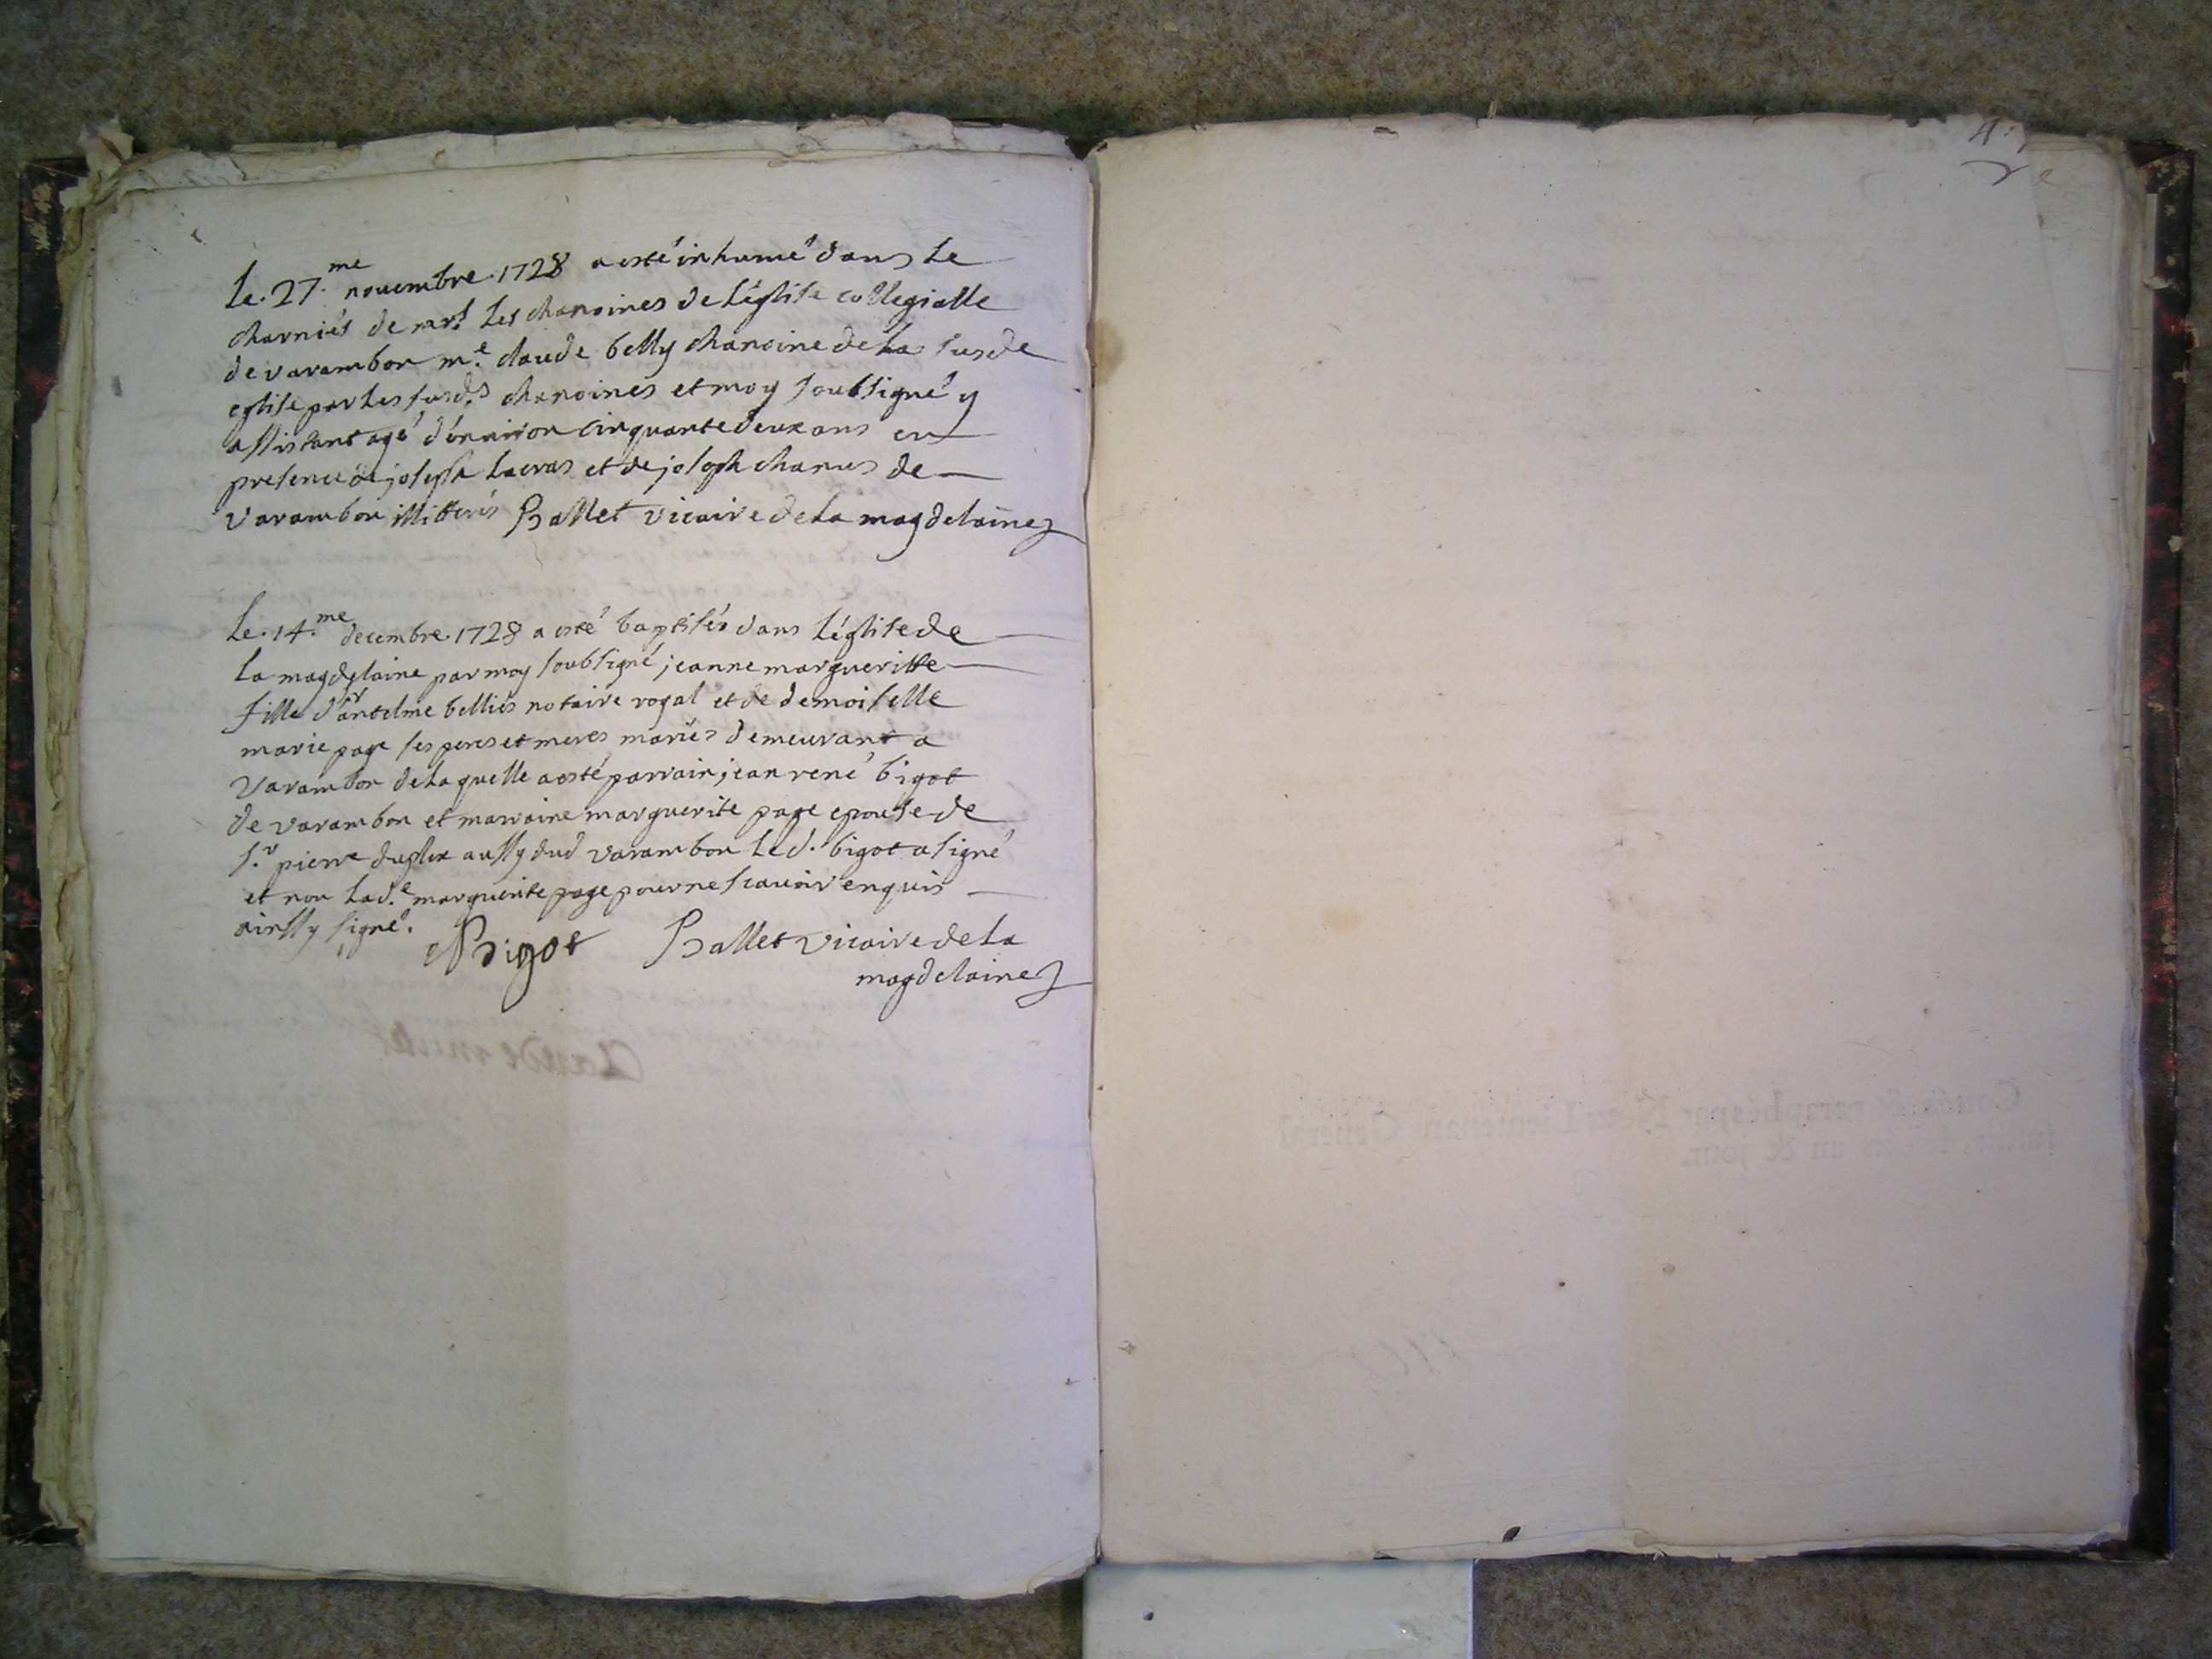 Le. 27.me novembre. 1728 a esté inhumé dans Le
charniér de mrs. Les chanoines de Léglise collegialle
de varambon me. claude belly chanoine de La susde
eglise par Les susds. chanoines et moy soubsigné y
assistant agé d'énviron cinquante deux ans en
presence de joseph Lacras et de joseph chanus de
varambon illitterés Ballet vicaire de La magdelaine
Le. 14.me decembre. 1728 a esté baptisée dans Léglise de
La magdelaine par moy soubsigné jeanne margueritte
fille d'sr antelme belliér notaire royal et de demoiselle
marie page ses peres et meres mariés demeurant a
Varambon de Laquelle a esté parrain jean rené bigot
de varambon et marraine marguerite page epouse de
sr. pierre duplex aussy dud varambon Led. bigot a signé
et non Lade. marguerite page pour ne scavoir enquis
ainssy signé.
Bigot Ballet vicaire de La
magdelaine